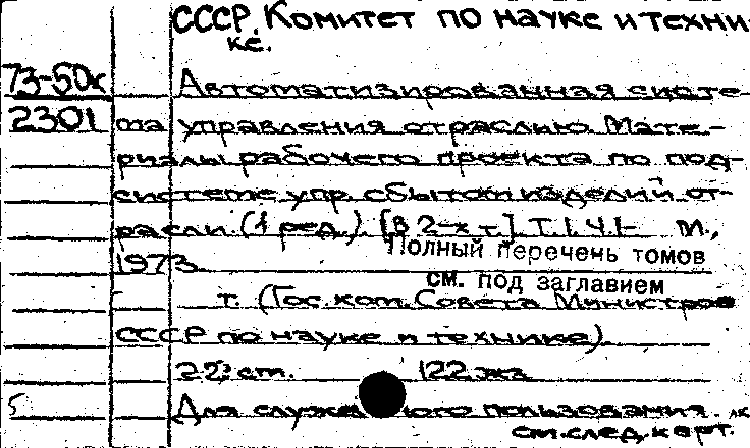 СССР. Комитет по науке и техни-
ке.
73-50к Автоматизированная систе-
2301 ма управления отраслью. Мате-
риалы рабочего проекта по под-
системе упр. сбытом изделий от-
расли. (1 ред.) [В 2-х т.] Т.1. Ч.1- М.,
Полный перечень томов
1973.
см. под заглавием
т. (Гос. ком. Совета Министров
СССР по науке и технике).
см. 122
5 Для пользования.
см. след. карт.